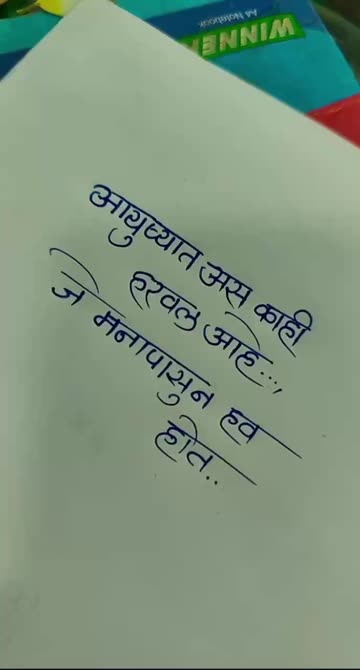 A4 Notebook
WINNER
आयुष्यात अस काही
हरवल आहे...,
जे मनापासुन हव
होत..